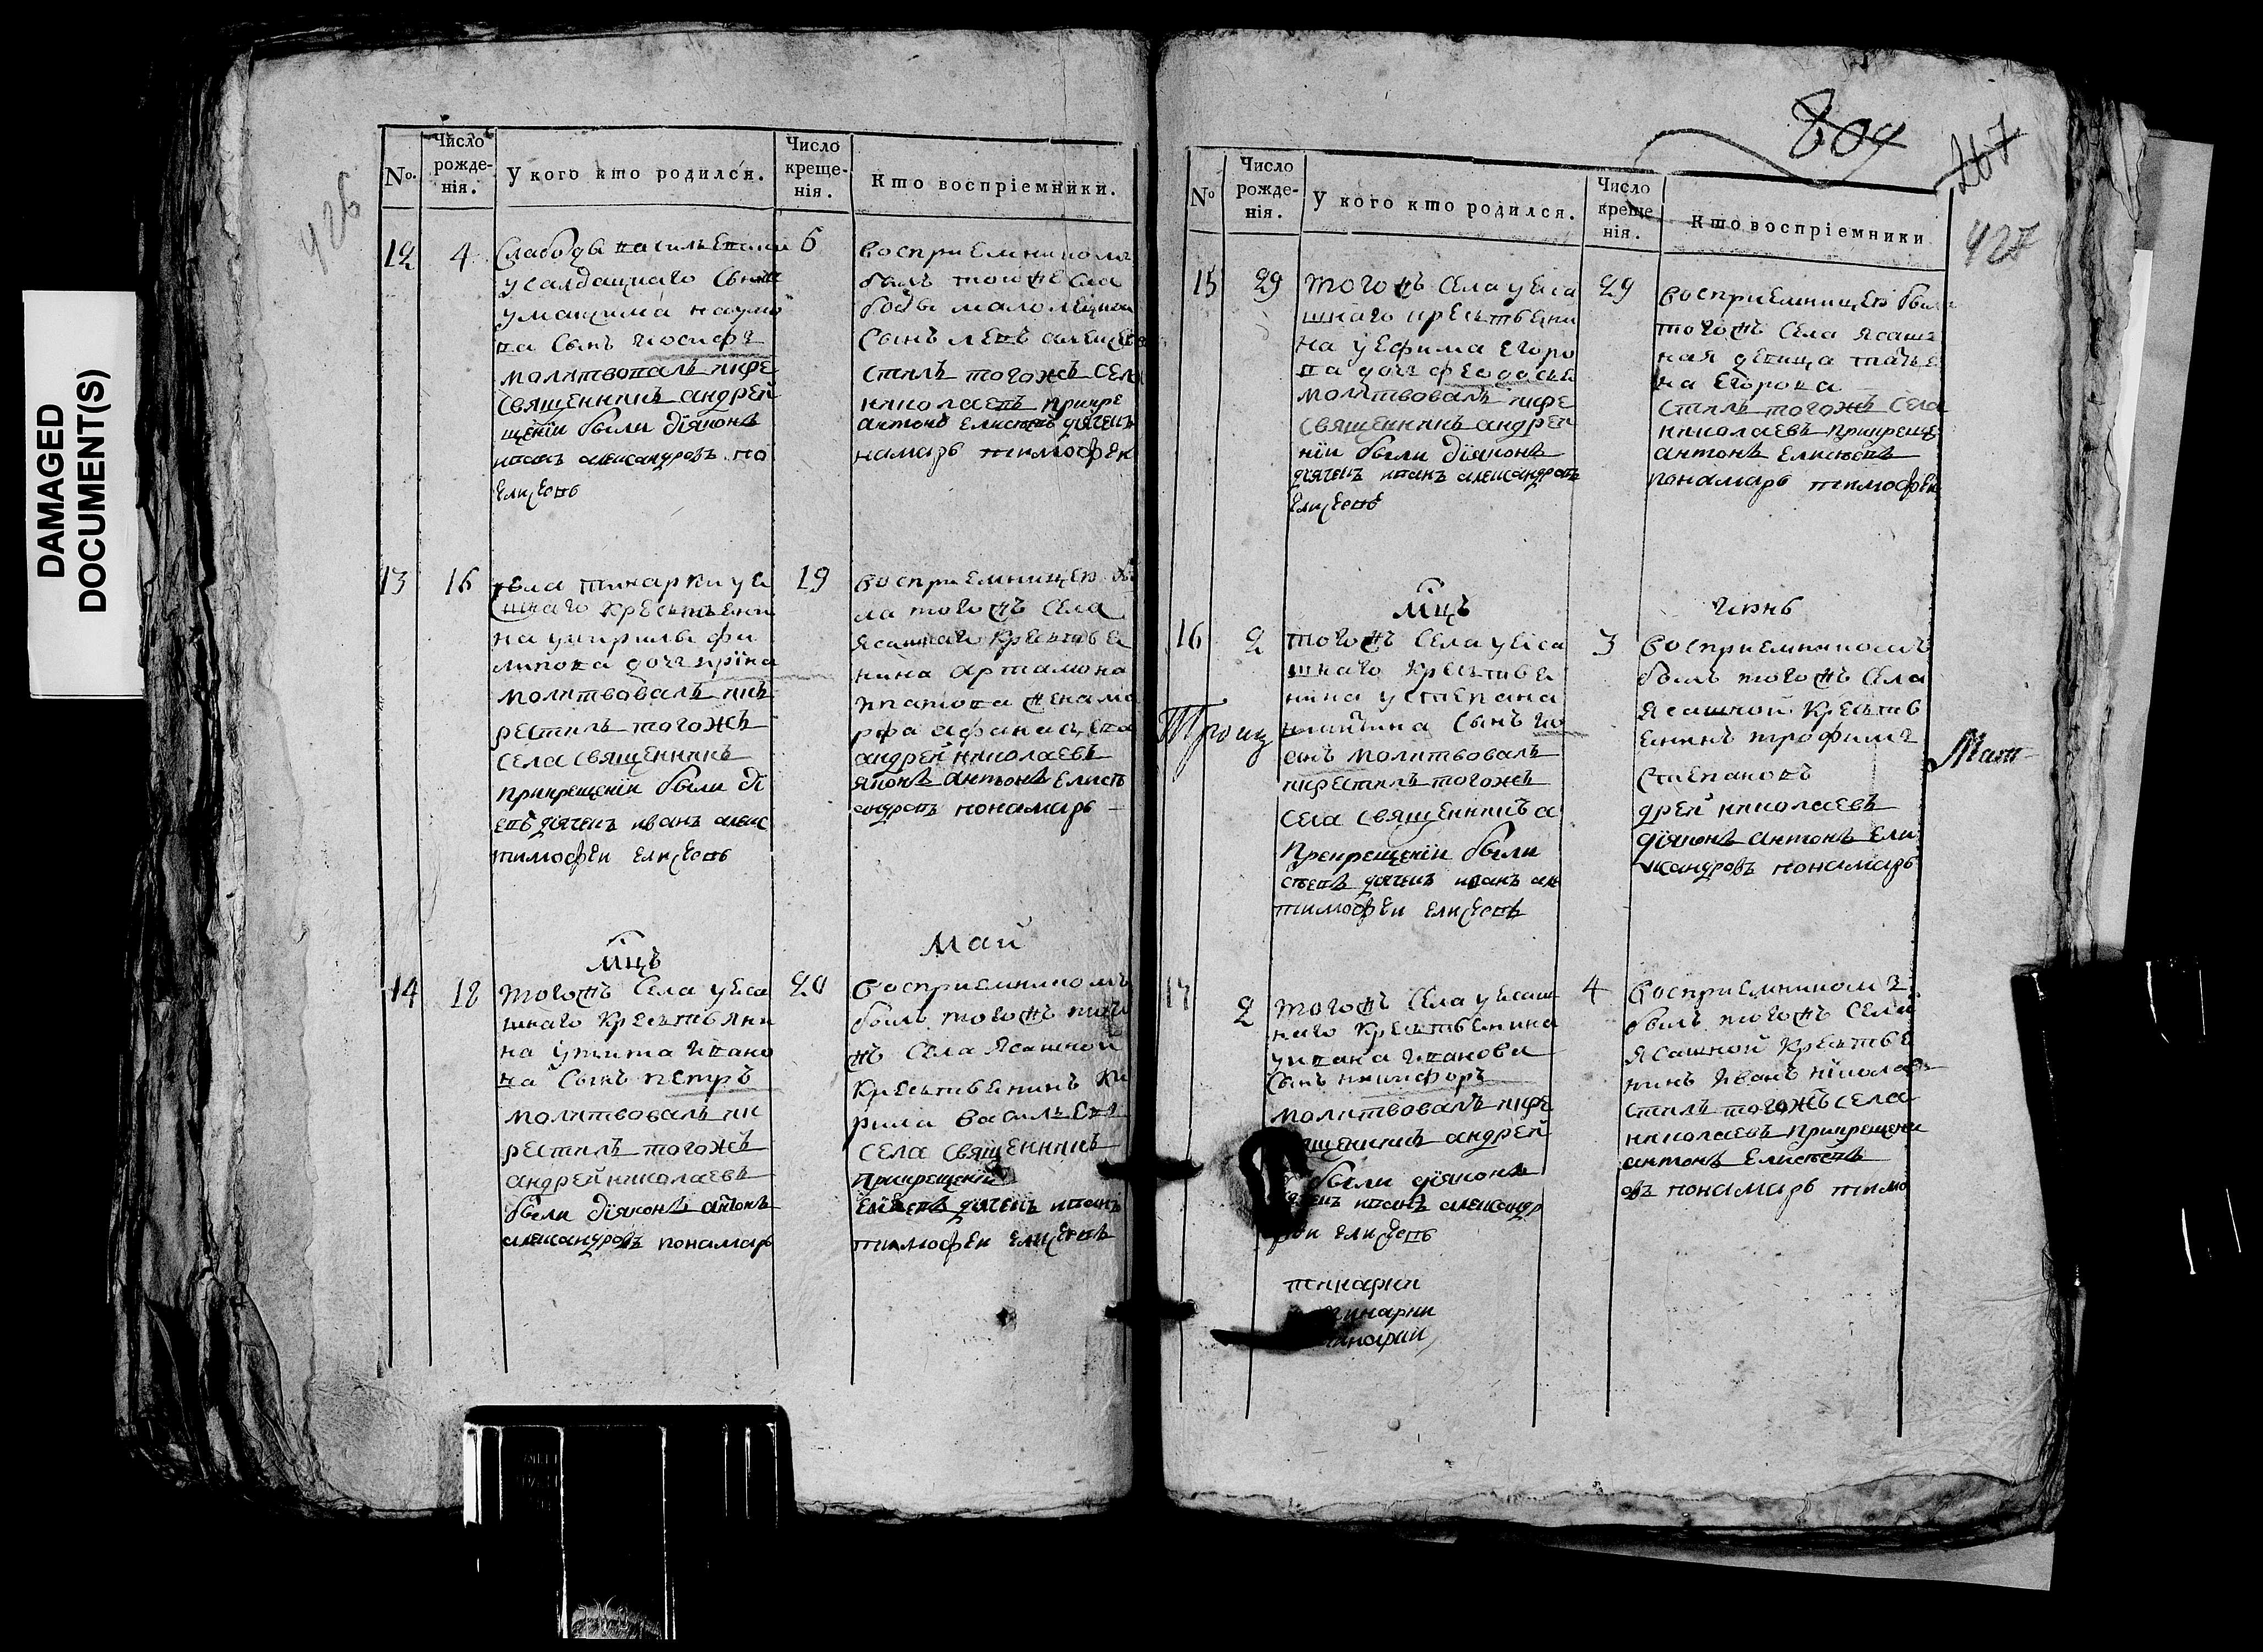 DAMAGED
DOCUMENT(S)
426
№
Число рожде-нія.
У кого кто родился.
Число креще-нія.
Кто воспріемники.
12
4
Слабоды васильевской
усалдацкаго сына
умаѯима наумо
ва сынъ иосифъ
молитвовалъ икре
священникъ андрей
щеніи были діяконъ
иванъ александровъ по
елисеевъ
6
восприемникомъ
былъ тоиже сла
боды
сынъ левъ алексеев
стилъ тогожъ села
николаевъ прикре
антонъ елисеевъ дячекъ
намарь тимофеи
13
16
села уеса
шнаго крестьяни
на укирилы фи
липова дочь ирина
молитвовалъ ик
рестилъ тогожъ
села священникъ
прикрещеніи были ді
евъ дячекъ иванъ алекс
тимофеи елисеевъ
19
восприемницею бы
ла тогожъ села
ясашнаго крестьяе
нина артамона
жена ма
рфа афанасьева
андрей николаевъ
яконъ антонъ елисе
андровъ понамарь
мцъ
май
14
18
тогожъ села уеса
шнаго крестьяни
на утита ивано
ва сынъ петръ
молитвовалъ ик
рестилъ тогожъ
андрей николаевъ
были діяконъ антонъ
александровъ понамарь
20
восприемникомъ
былъ тогожъ
жъ села ясашной
крестьяенинъ ки
рила васильевъ
села священникъ
прикрещеніи
елисеевъ дячекъ иванъ
тимофеи елисеевъ
804
267
427
№
Число рожде-нія.
У кого кто родился.
Число креще нія.
Кто воспріемники
15
29
тогожъ села уеса
шнаго крестьяни
на уефима егоро
ва дочь феодосья
молитвовалъ икре
священникъ андрей
ніи были діяконъ
дячекъ иванъ александровъ
елисеевъ
29
восприемницею была
тогожъ села ясаш
ная девица татья
на егорова
стилъ тогожъ села
николаевъ прикреще
антонъ елисеевъ
понамарь тимофеи
мцъ
июнь
16
2
тогожъ села уеса
шнаго крестьяе
нина устепана
никитина сынъ ио
анъ молитвовалъ
икрестилъ тогожъ
села священникъ а
прикрещеніи были
сеевъ дячекъ иванъ але
тимофеи елисеевъ
3
восприемникомъ
былъ тогожъ села
ясашной крестья
енинъ трофимъ
степановъ
дрей николаевъ
діяконъ антонъ ели
ксандровъ понамарь
Троиц
Мат-
17
2
тогожъ села уесаш
наго крестьянина
уивана иванова
сынъ никифоръ
молитвовалъ икре
щенникъ андрей
были діяконъ
иванъ александр
феи елисеевъ
4
восприемникомъ
былъ тогожъ села
ясашной крестьяе
нинъ иванъ николаевъ
стилъ тогожъ села
николаевъ прикрещени
антонъ елисеевъ
овъ понамарь тимо